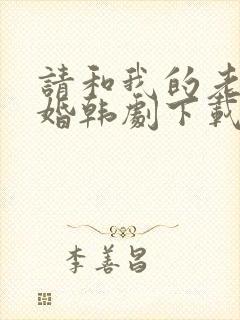 請和我的老
婚韩劇下載
李善昌